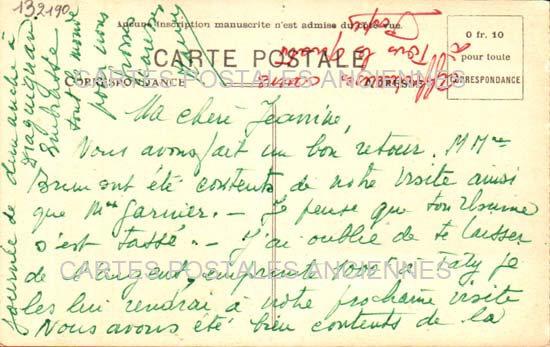 132190
Aucune inscription manuscrite n'est admise du côté vue.
CARTE POSTALE
CORRESPONDANCE
ADRESSE
0 fr. 10
pour toute
CORRESPONDANCE
CARTES POSTALES ANCIENNES
Ma chère Jeannine,
Nous avons fait un bon retour. M Mme
Brun ont été contents de notre visite ainsi
que Mme Garnier. — Je pense que ton rhume
s'est tassé. — J'ai oublié de te laisser
de l'argent, emprunte à Taty je
les lui rendrai à notre prochaine visite
Nous avons été bien contents de la
CARTES POSTALES ANCIENNES
journée de dimanche à
Draguignan
Embrasse
tout le monde
pour nous
bons